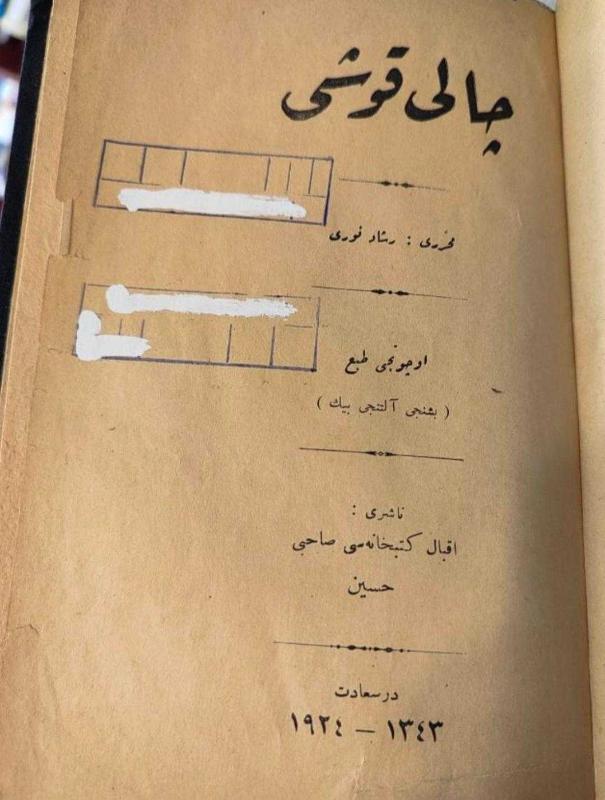 چالی قوشی
محرری : رشاد نوری
اوچونجی طبع
( بشنجی آلتنجی بیك )
ناشری :
اقبال كتبخانه‌سی صاحبی
حسین
درسعادت
١٣٤٣ — ١٩٢٤